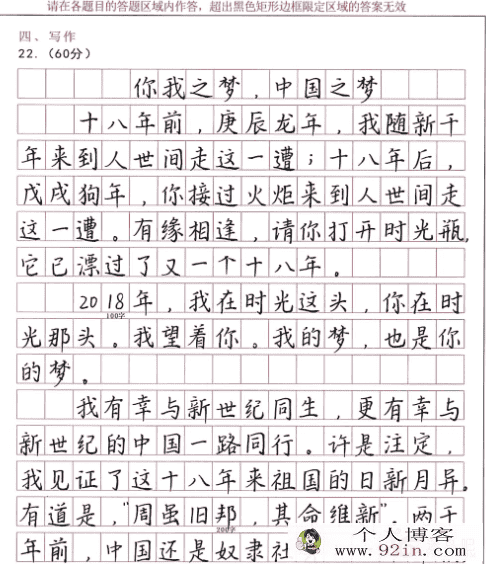 请在各题目的答题区域内作答，超出黑色矩形边框限定区域的答案无效
四、写作
22.（60分）
你我之梦，中国之梦
十八年前，庚辰龙年，我随新千
年来到人世间走这一遭；十八年后，
戊戌狗年，你接过火炬来到人世间走
这一遭。有缘相逢，请你打开时光瓶，
它已漂过了又一个十八年。
2018年，我在时光这头，你在时
100字
光那头。我望着你。我的梦，也是你
的梦。
我有幸与新世纪同生，更有幸与
新世纪的中国一路同行。许是注定，
我见证了这十八年来祖国的日新月异。
有道是，“周虽旧邦，其命维新”。两千
200字
年前，中国还是奴隶社
个人博客
www.92in.com